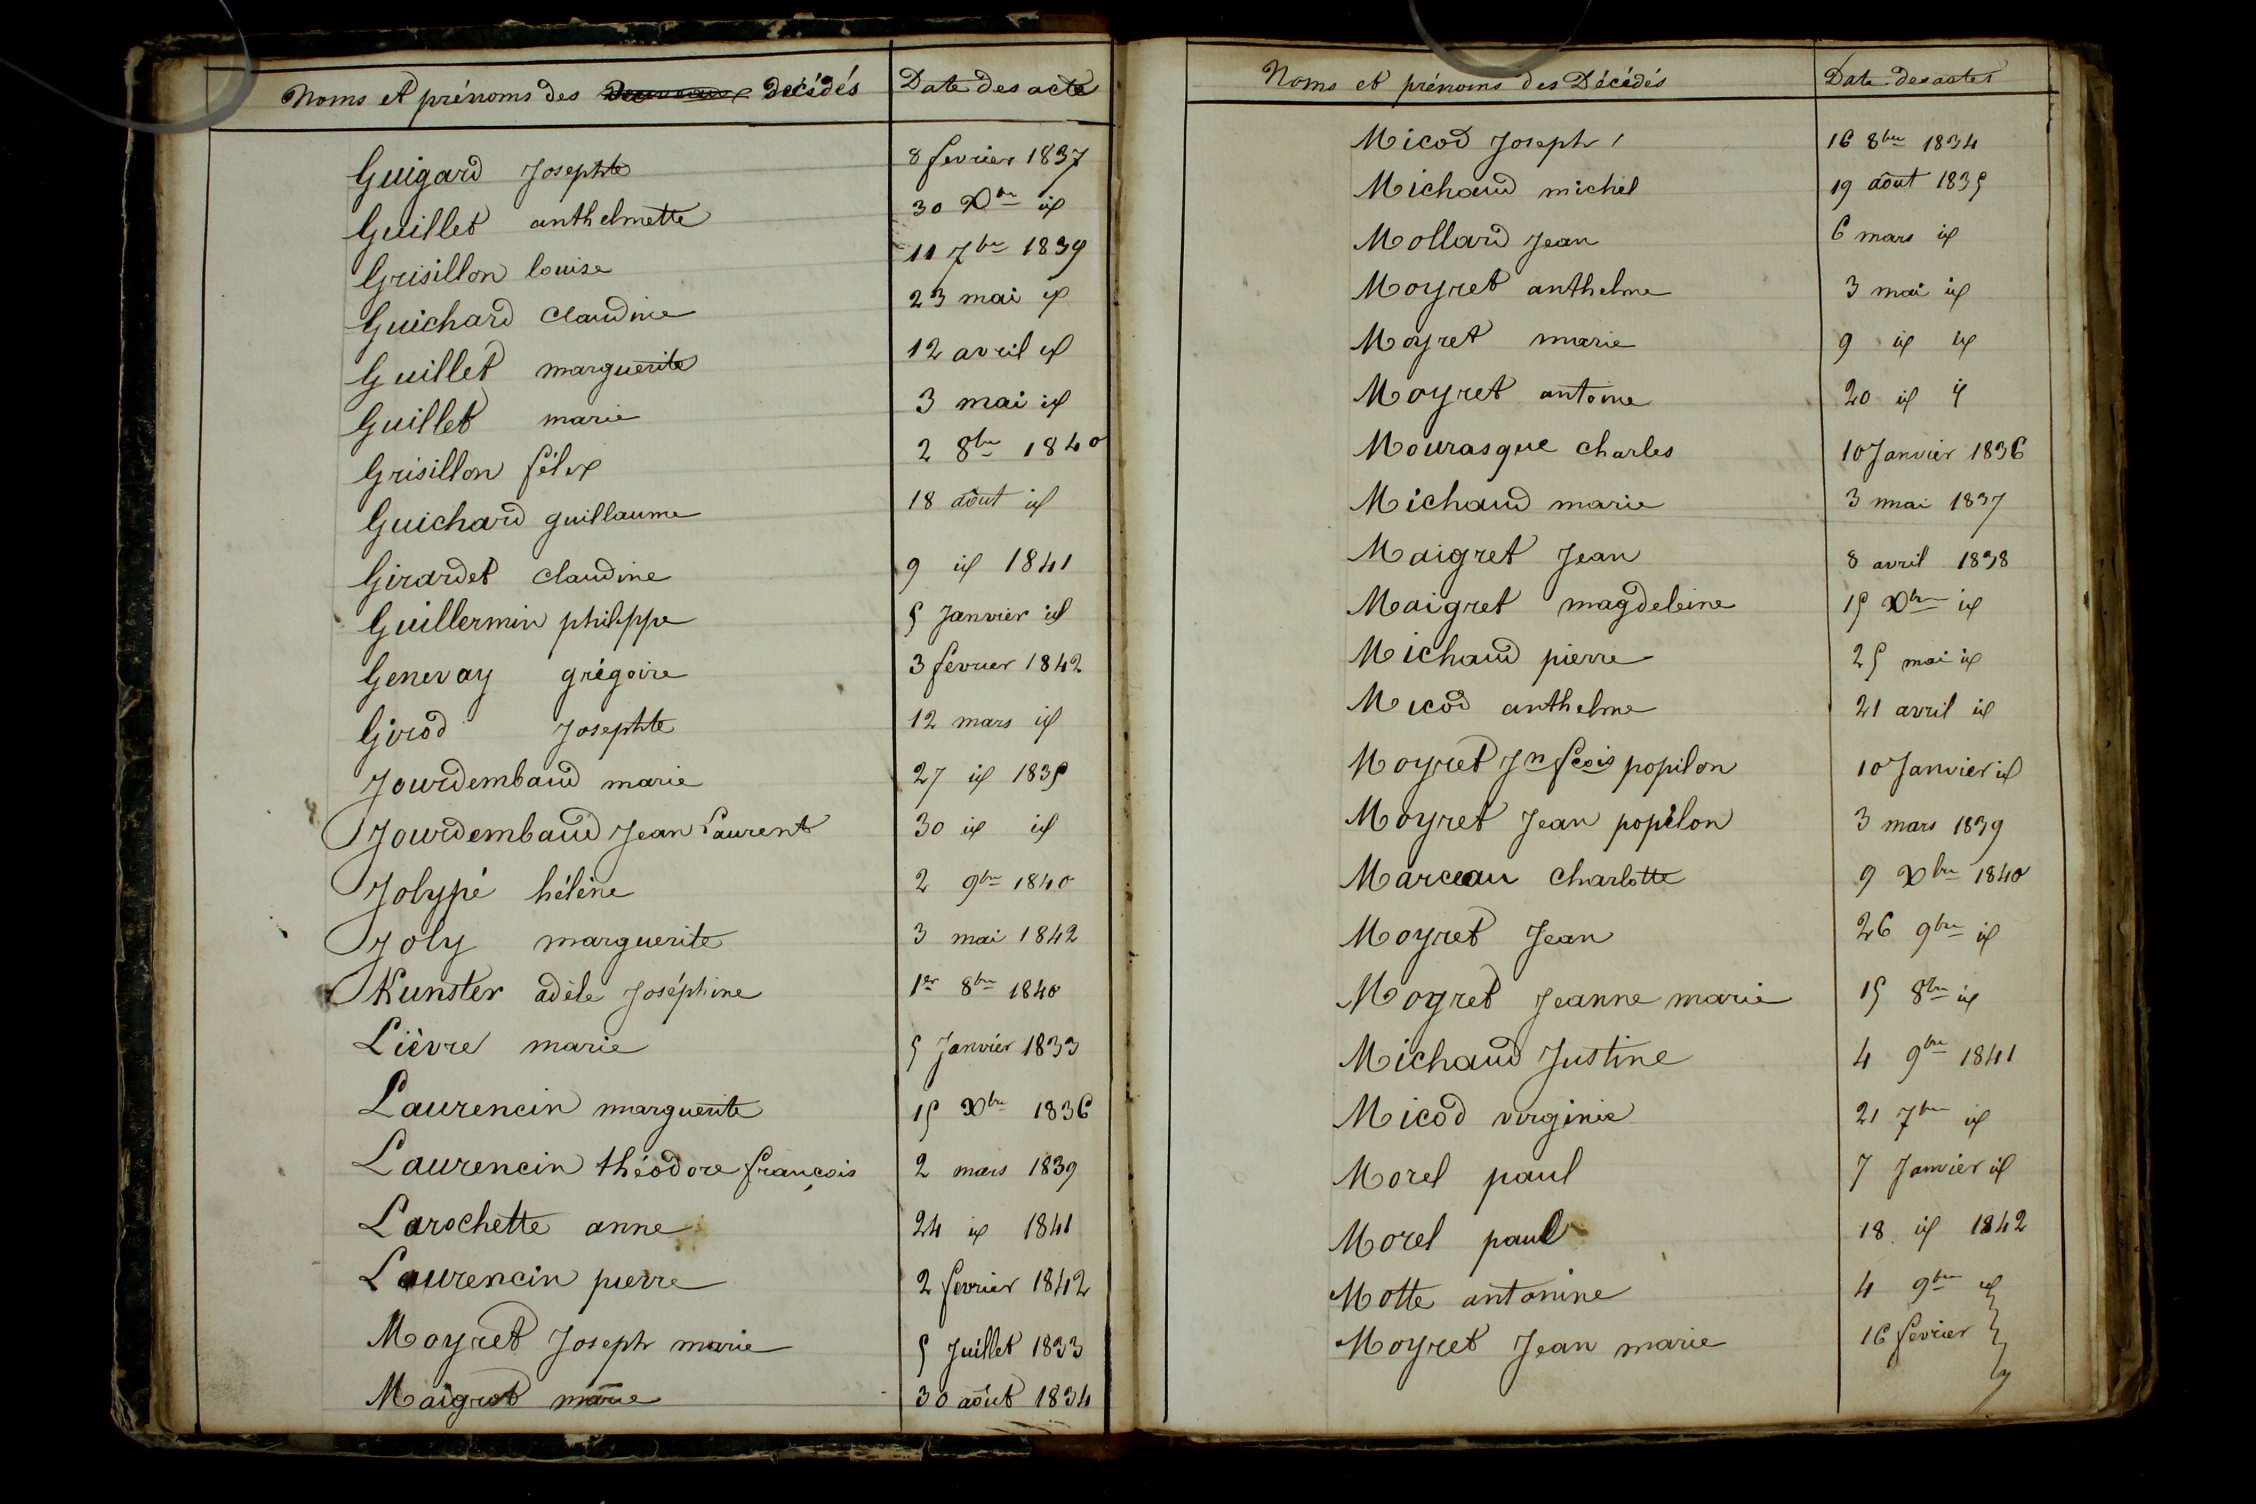 Noms et prénoms des décédés Date des acte
Guigard Josephte 8 fevrier 1837
Guillet anthelmette 30 Xbre id
Grisillon louise 11 7bre 1839
Guichard Claudine 23 mai id
Guillet marguerite 12 avril id
Guillet marie 3 mai id
Grisillon félix 2 8bre 1840
Guichard guillaume 18 août id
Girardet claudine 9 id 1841
Guillermin philippe 5 Janvier id
Genevay grégoire 3 fevrier 1842
Girod Josephte 12 mars id
Jourdembaud marie 27 id 1835
Jourdembaud Jean Laurent 30 id id
Jolypé hélène 2 9bre 1840
Joly marguerite 3 mai 1842
Kunster adèle Joséphine 1er 8bre 1840
Lièvre marie 5 Janvier 1833
Laurencin marguerite 15 Xbre 1836
Laurencin théodore françois 2 mars 1839
Larochette anne 24 id 1841
Laurencin pierre 2 fevrier 1842
Moyret Joseph marie 5 Juillet 1833
Maigret marie 30 août 1834
Noms et prénoms des Décédés Date des actes
Micod Joseph 16 8bre 1834
Michaud michel 19 août 1835
Mollard Jean 6 mars id
Moyret anthelme 3 mai id
Moyret marie 9 id id
Moyret antoine 20 id id
Mourasque Charles 10 Janvier 1836
Michaud marie 3 mai 1837
Maigret Jean 8 avril 1838
Maigret magdeleine 15 Xbre id
Michaud pierre 25 mai id
Micod anthelme 21 avril id
Moyret Jn fcois popilon 10 Janvier id
Moyret Jean popilon 3 mars 1839
Marceau Charlotte 9 Xbre 1840
Moyret Jean 26 9bre id
Moyret Jeanne marie 15 8bre id
Michaud Justine 4 9bre 1841
Micod virginie 21 7bre id
Morel paul 7 Janvier id
Morel paul 18 id 1842
Motte antonine 4 9bre id
Moyret Jean marie 16 fevrier